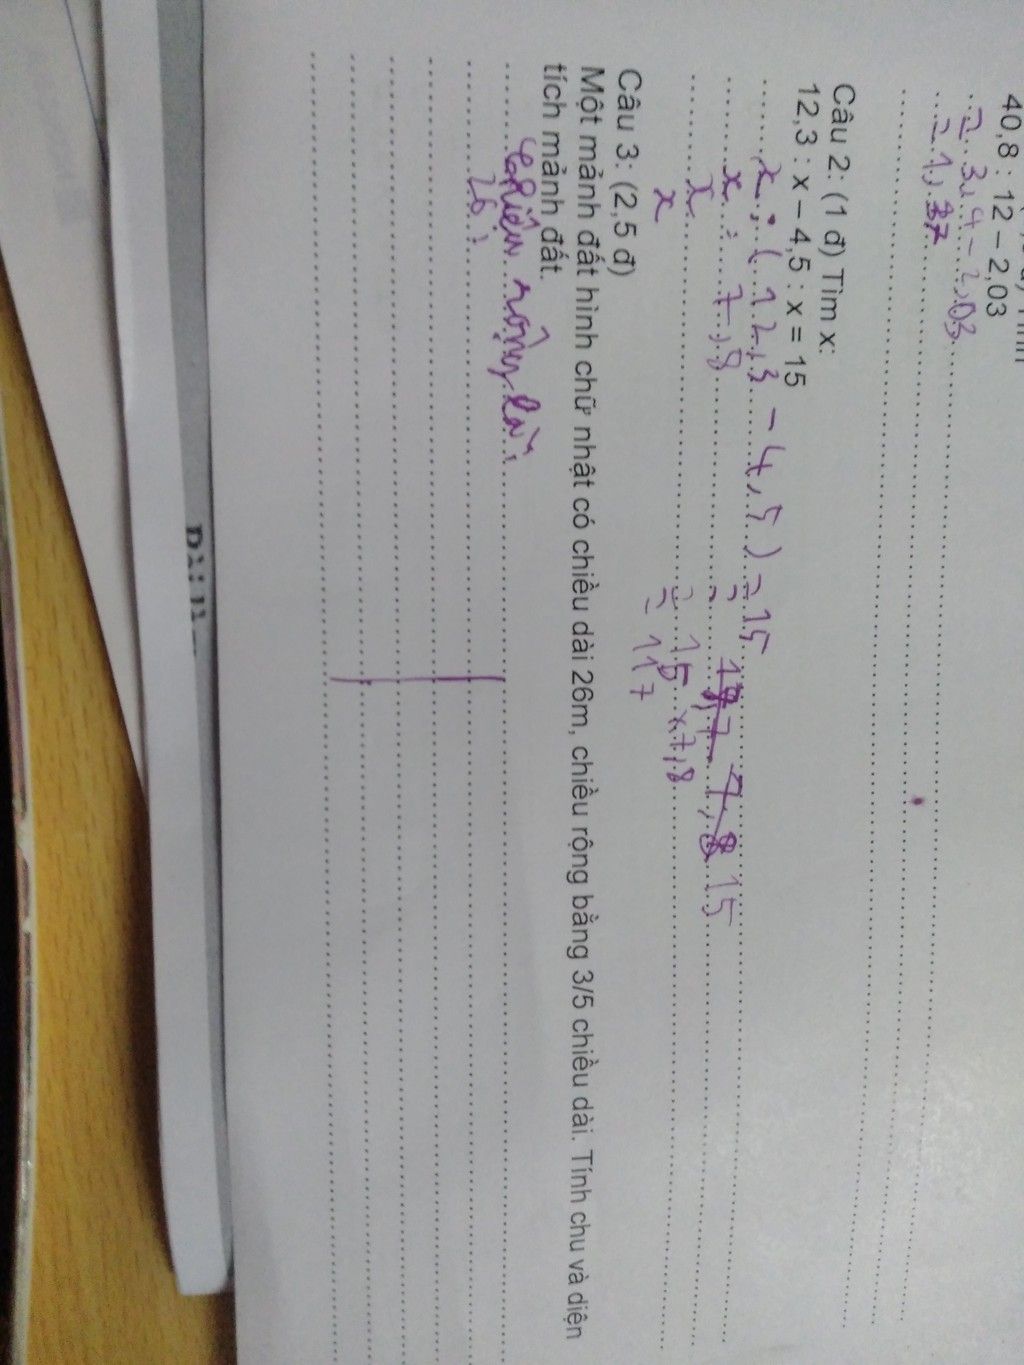 40,8 : 12 – 2,03
= 3,4 – 2,03
= 1,37
Câu 2: (1 đ) Tìm x:
12,3 : x – 4,5 : x = 15
x : (12,3 – 4,5) = 15
x : 7,8 = 15
x = 15 x 7,8
x = 117
Câu 3: (2,5 đ)
Một mảnh đất hình chữ nhật có chiều dài 26m, chiều rộng bằng 3/5 chiều dài. Tính chu và diện
tích mảnh đất.
chiều rộng là:
26 :